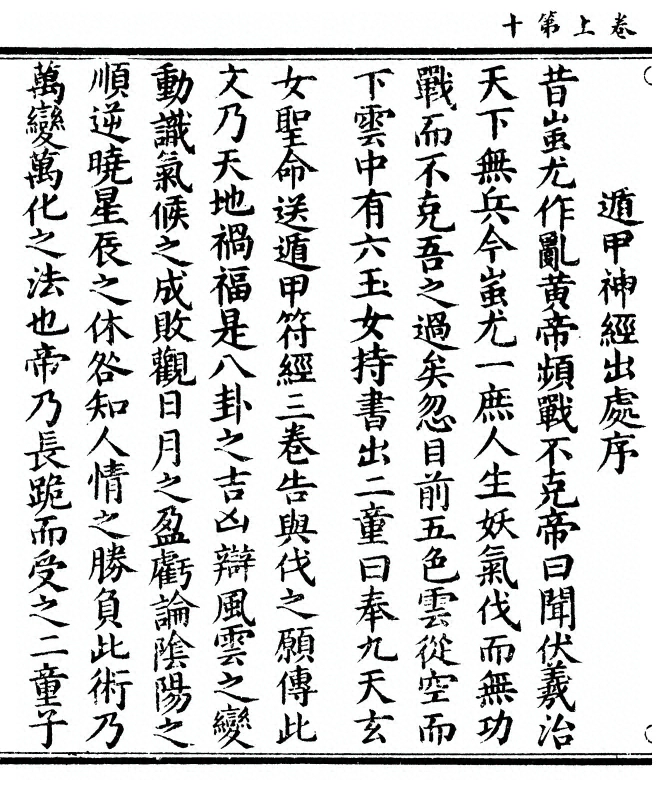 卷上第十
遁甲神經出處序
昔蚩尤作亂黄帝頻戰不克帝曰聞伏羲治
天下無兵今蚩尤一庶人生妖氣伐而無功
戰而不克吾之過矣忽目前五色雲從空而
下雲中有六玉女持書出二童曰奉九天玄
女聖命送遁甲符經三卷告與伐之願傳此
文乃天地禍福是八卦之吉凶辯風雲之變
動識氣候之成敗觀日月之盈虧論陰陽之
順逆曉星辰之休咎知人情之勝負此術乃
萬變萬化之法也帝乃長跪而受之二童子